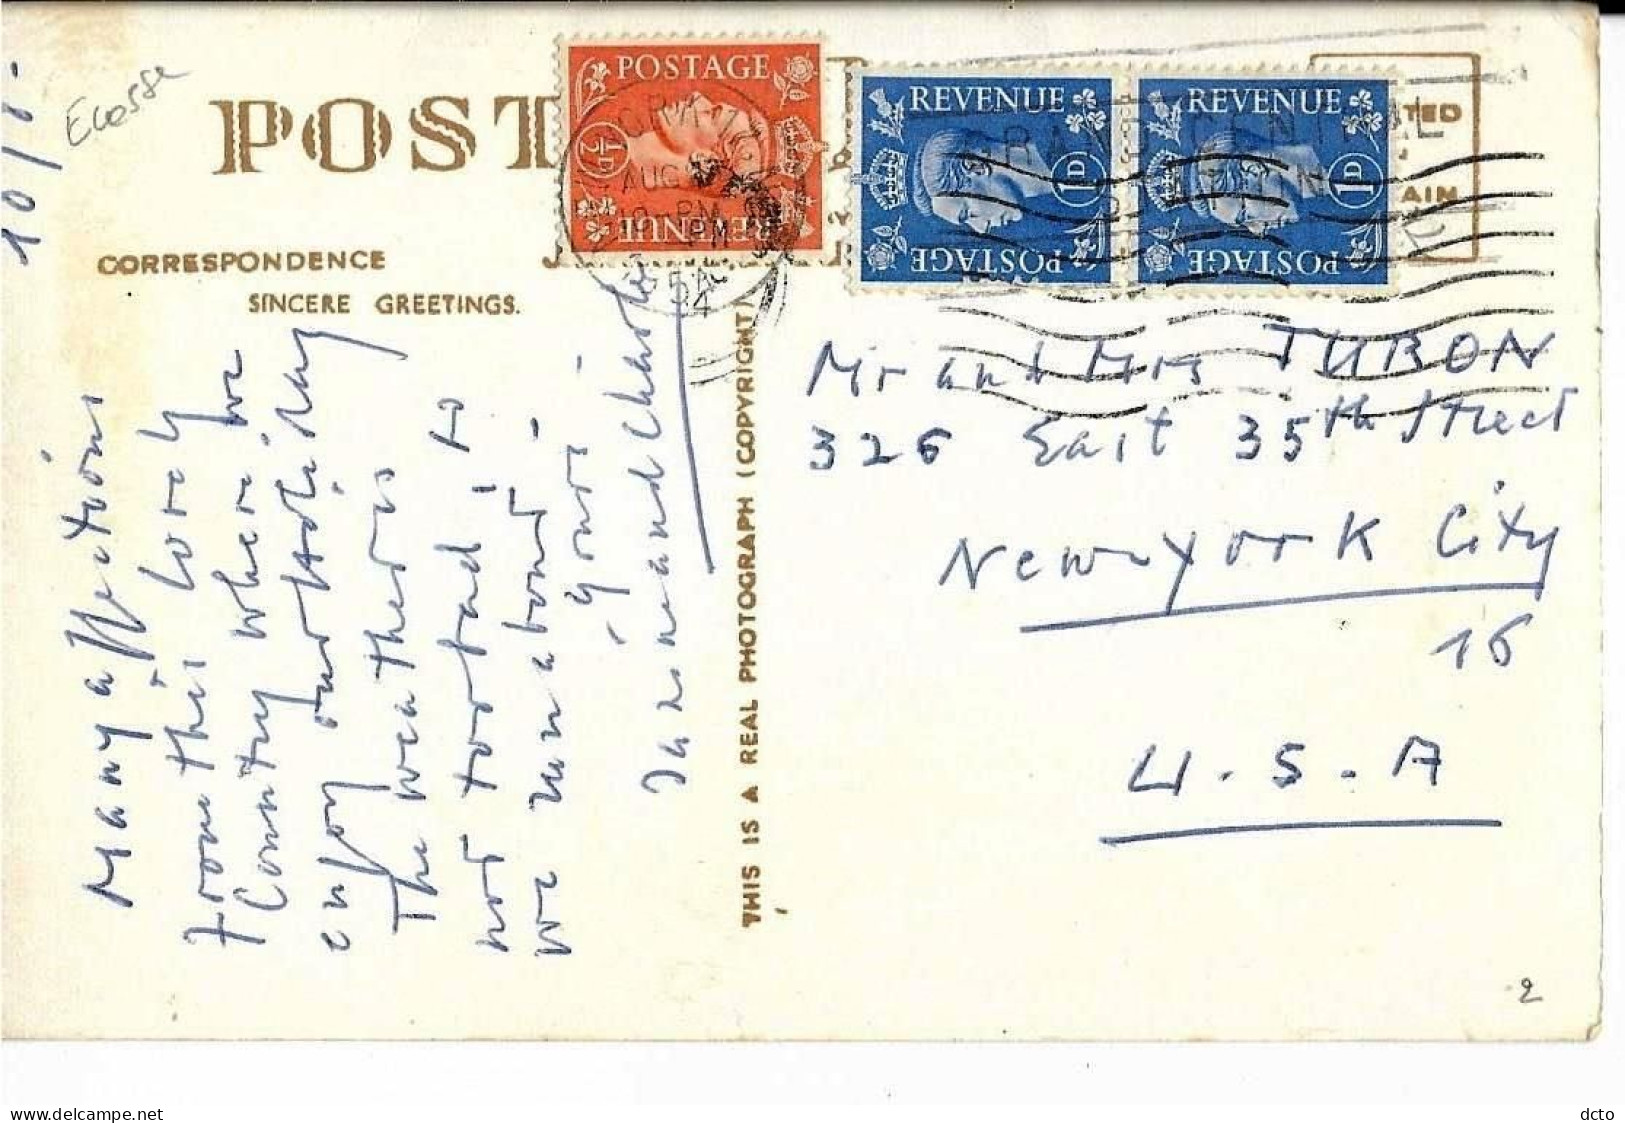 10/8-
Ecosse
POST
CORRESPONDENCE
SINCERE GREETINGS.
POSTAGE
½D
REVENUE
REVENUE
1D
POSTAGE
REVENUE
1D
POSTAGE
AUG
PM
GRAND CENTRAL
STATION
54
Many affections
from this lovely
Country where we
enjoy our Holiday
The weather is
not too bad, to
we
Yours
and Charlie
THIS IS A REAL PHOTOGRAPH (COPYRIGHT)
Mr and Mrs TUBON
326 East 35th Street
New-York City
16
U.S.A
2
www.delcampe.net
dcto